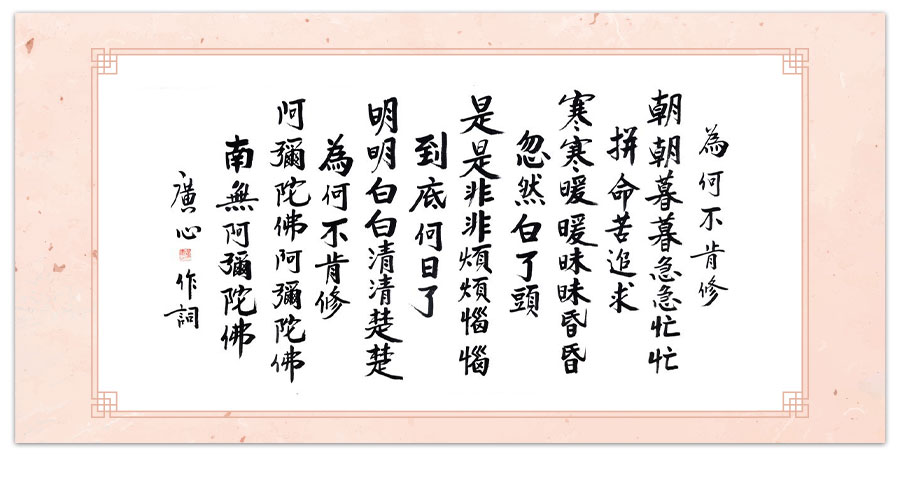 為何不肯修
朝朝暮暮急急忙忙
拼命苦追求
寒寒暖暖昧昧昏昏
忽然白了頭
是是非非煩煩惱惱
到底何日了
明明白白清清楚楚
為何不肯修
阿彌陀佛阿彌陀佛
南無阿彌陀佛
廣心
作詞